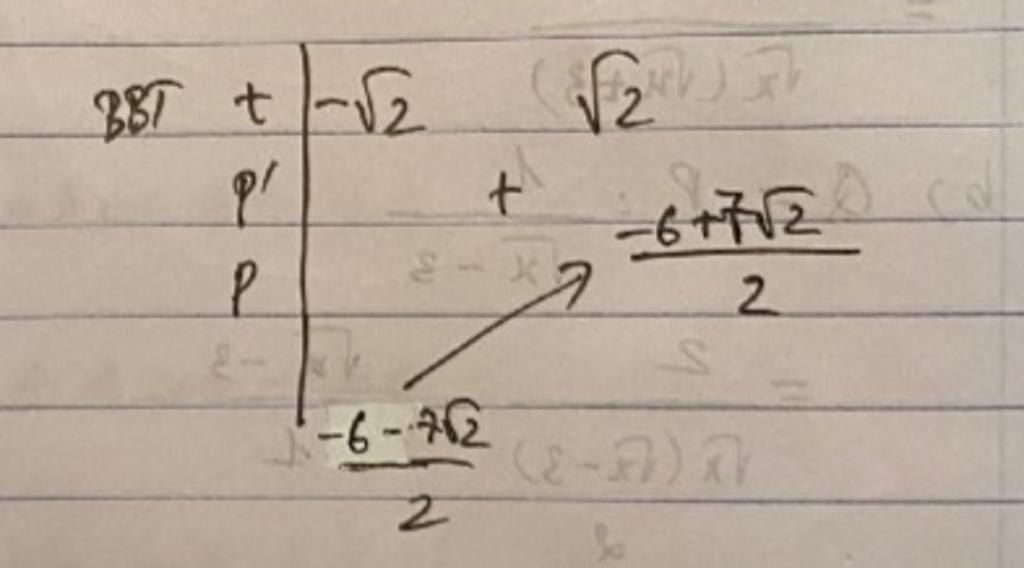 BBT t | -√2 √2
P' | +
P | (-6+7√2)/2
(-6-7√2)/2